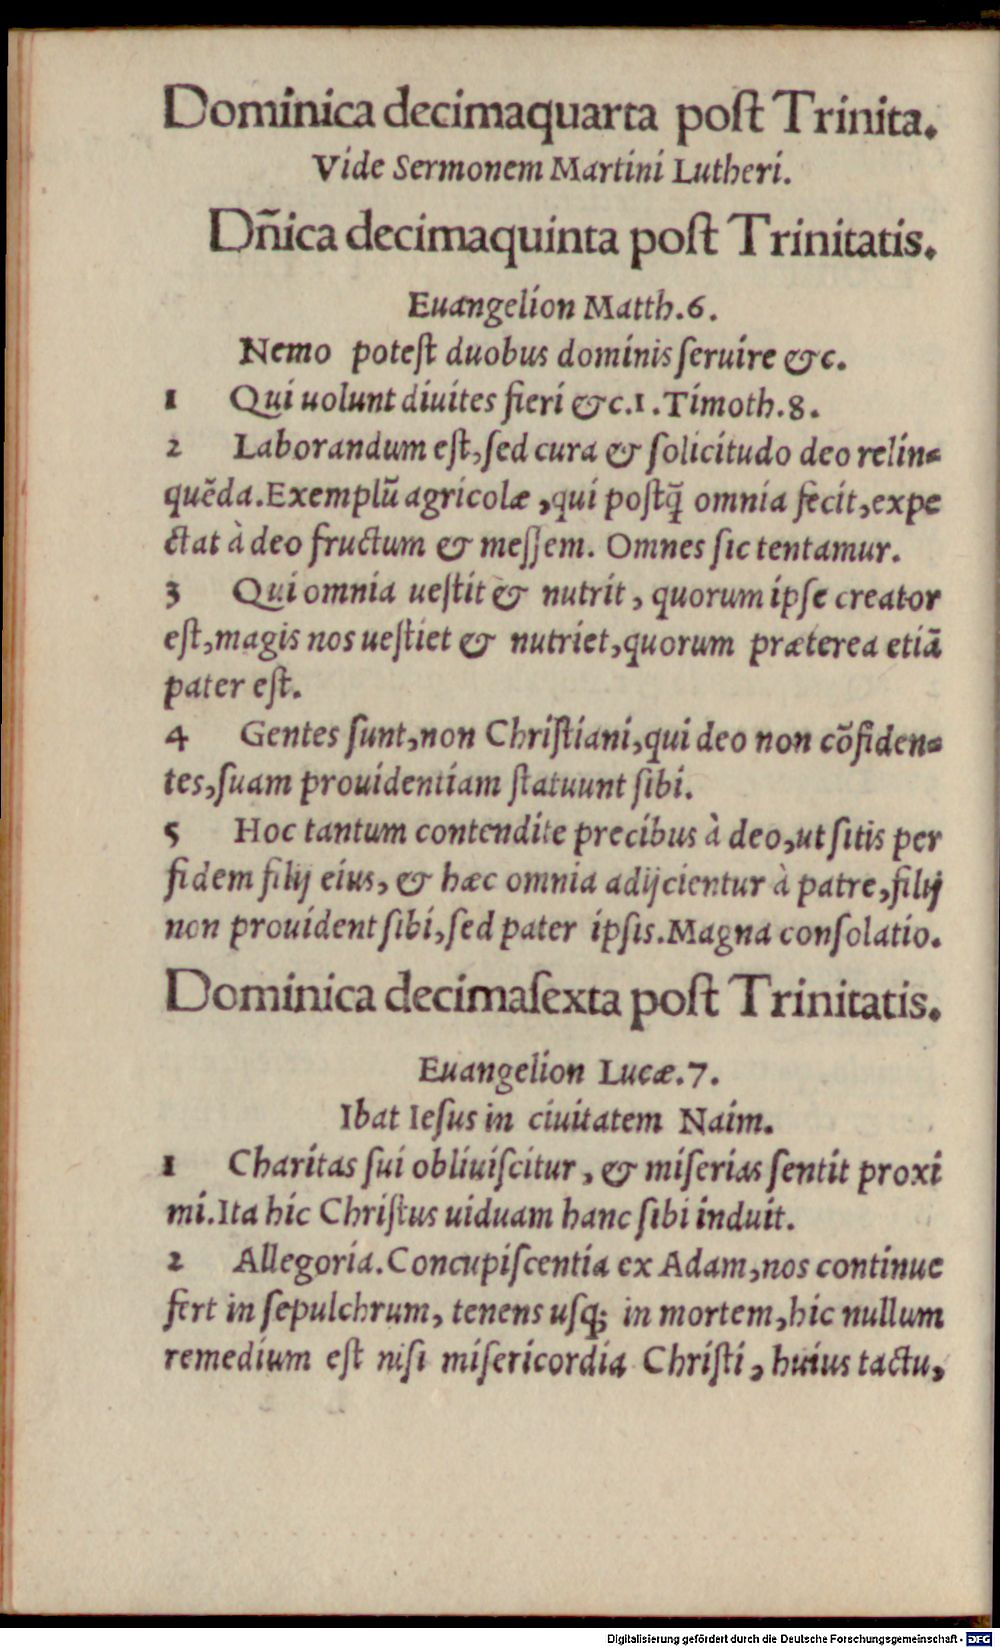 Dominica decimaquarta poſt Trinita.
Vide Sermonem Martini Lutheri.
Dñica decimaquinta poſt Trinitatis.
Euangelion Matth.6.
Nemo poteſt duobus dominis ſeruire &c.
1 Qui uolunt diuites fieri &c.1.Timoth.8.
2 Laborandum eſt,ſed cura & ſolicitudo deo relin=
quēda.Exemplū agricolæ ,qui poſtq̄ omnia fecit,expe
ctat à deo fructum & meſſem. Omnes ſic tentamur.
3 Qui omnia ueſtit & nutrit , quorum ipſe creator
eſt,magis nos ueſtiet & nutriet,quorum præterea etiā
pater eſt.
4 Gentes ſunt,non Chriſtiani,qui deo non cōfiden=
tes,ſuam prouidentiam ſtatuunt ſibi.
5 Hoc tantum contendite precibus à deo,ut ſitis per
fidem filij eius, & hæc omnia adijcientur à patre,filij
non prouident ſibi,ſed pater ipſis.Magna conſolatio.
Dominica decimaſexta poſt Trinitatis.
Euangelion Lucæ.7.
Ibat Ieſus in ciuitatem Naim.
1 Charitas ſui obliuiſcitur , & miſerias ſentit proxi
mi.Ita hic Chriſtus uiduam hanc ſibi induit.
2 Allegoria.Concupiſcentia ex Adam,nos continue
fert in ſepulchrum, tenens uſq; in mortem,hic nullum
remedium eſt niſi miſericordia Chriſti , huius tactu,
Digitalisierung gefördert durch die Deutsche Forschungsgemeinschaft - DFG